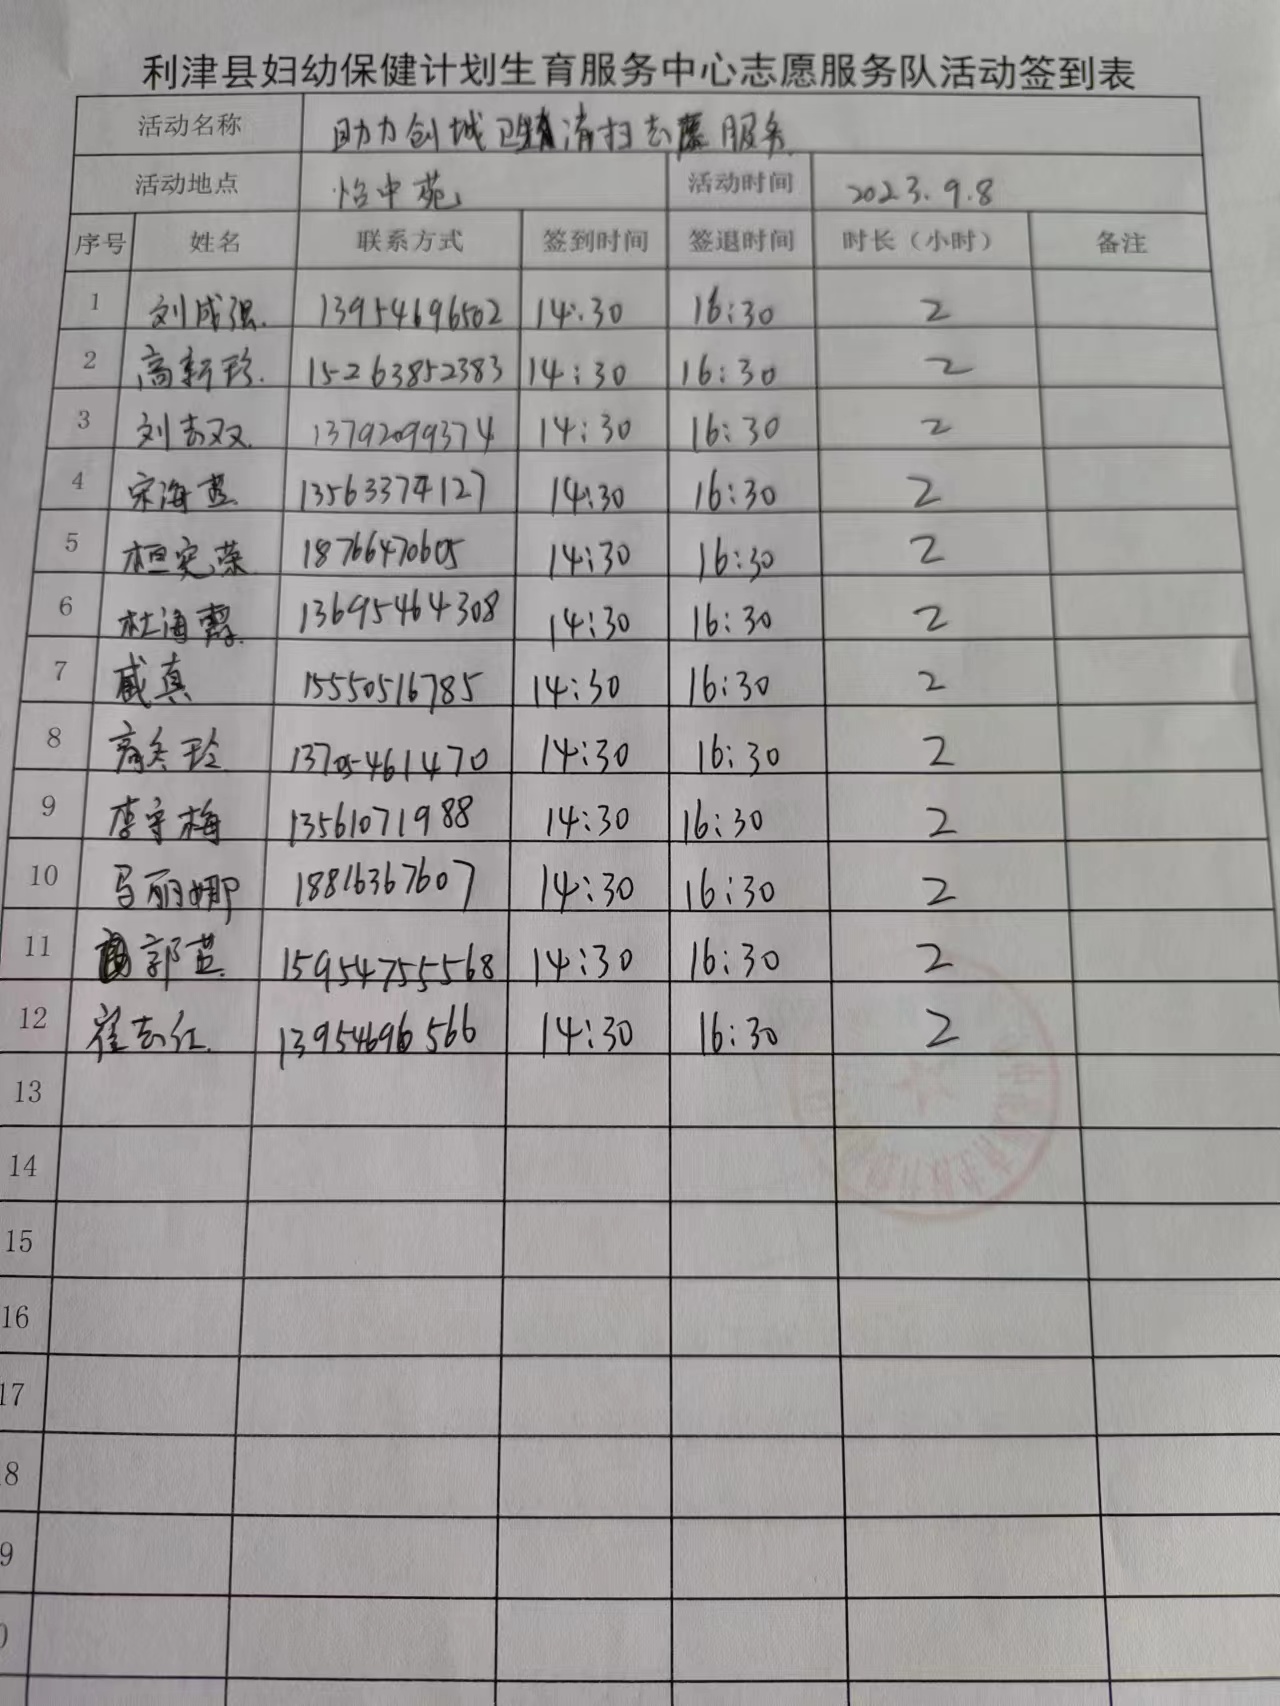 利津县妇幼保健计划生育服务中心志愿服务队活动签到表
活动名称 助力创城卫生清扫志愿服务
活动地点 怡中苑 活动时间 2023.9.8
序号 姓名 联系方式 签到时间 签退时间 时长（小时） 备注
1 刘成强 13954696502 14:30 16:30 2
2 高新珍 15263852383 14:30 16:30 2
3 刘志双 13792099374 14:30 16:30 2
4 宋海燕 13563374127 14:30 16:30 2
5 桓宪荣 18766470605 14:30 16:30 2
6 杜海霞 13695464308 14:30 16:30 2
7 戚真 15550516785 14:30 16:30 2
8 高冬玲 13705461470 14:30 16:30 2
9 李守梅 13561071988 14:30 16:30 2
10 马丽娜 18816367607 14:30 16:30 2
11 郭燕 15954755568 14:30 16:30 2
12 崔志红 13954696566 14:30 16:30 2
13
14
15
16
17
8
9